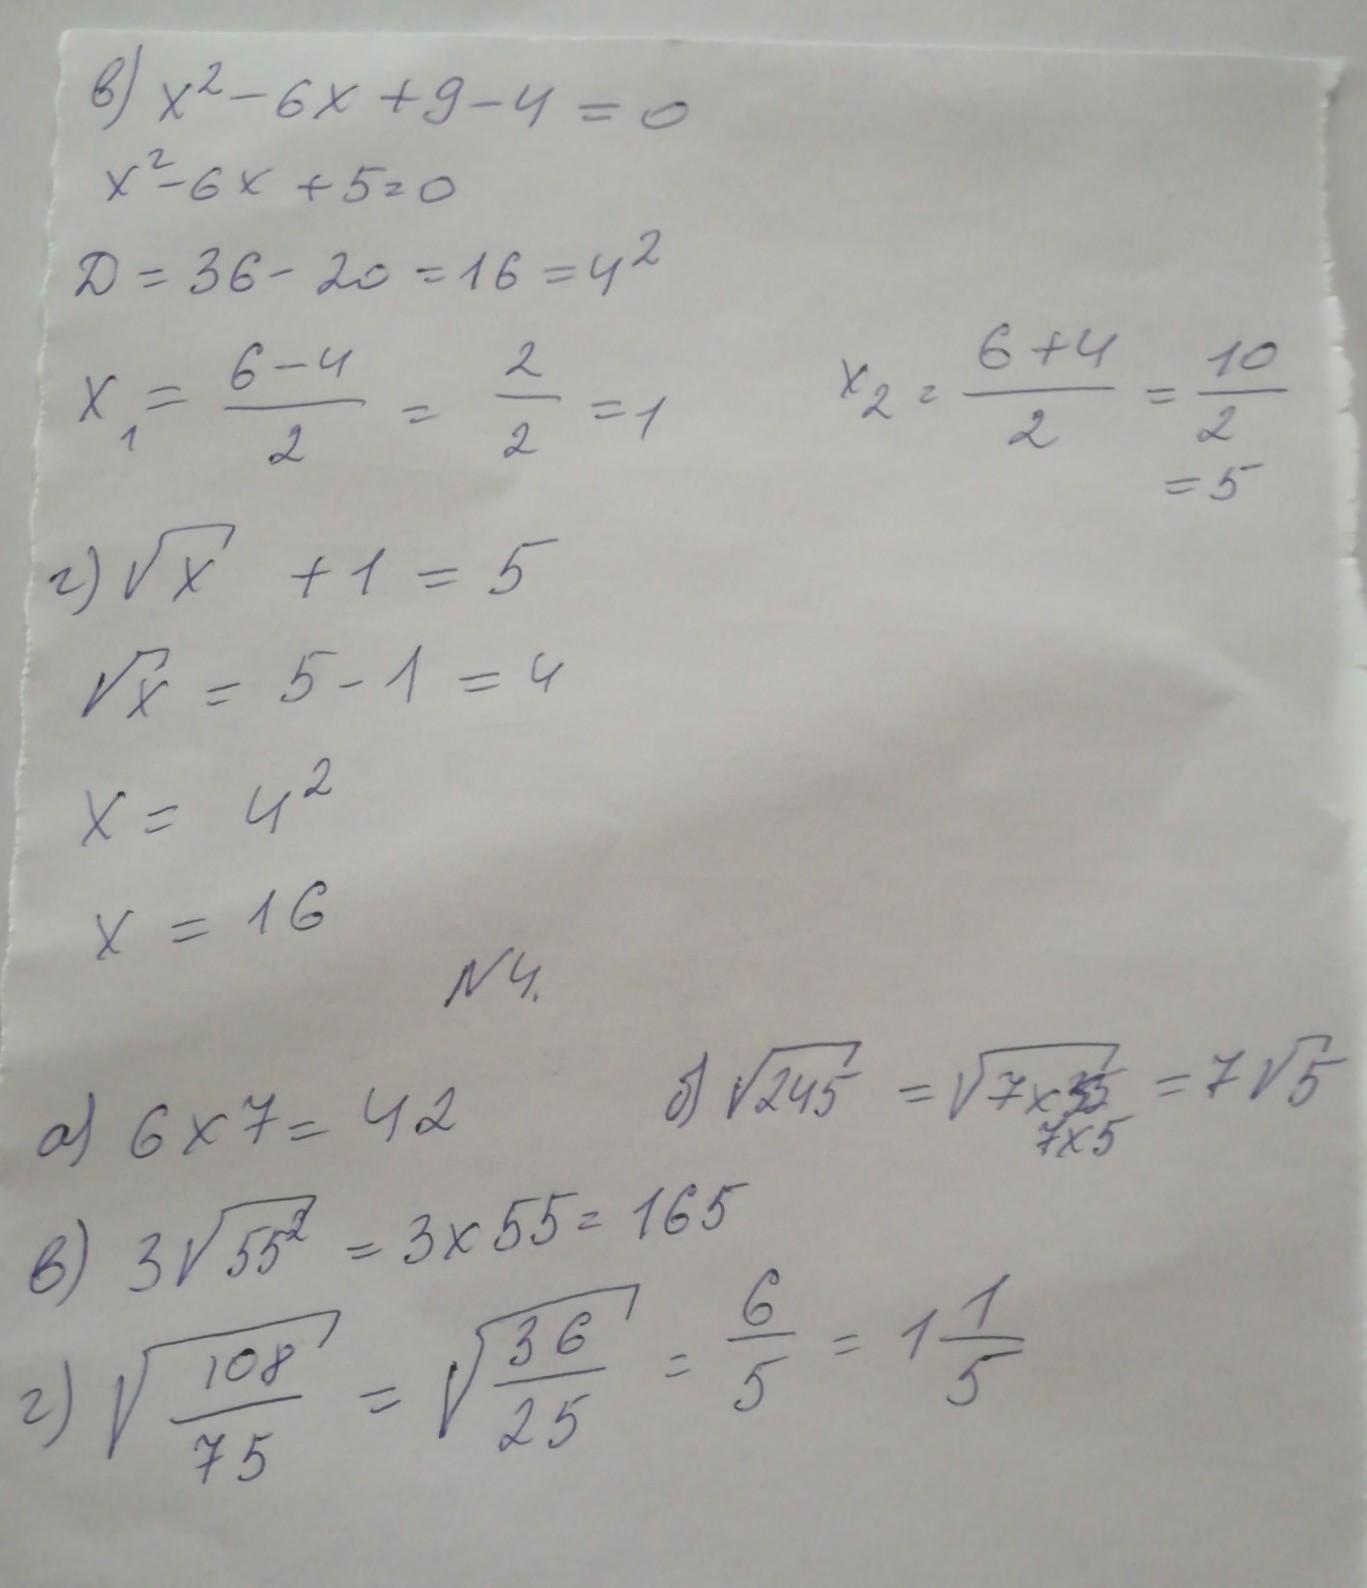 в) x² - 6x + 9 - 4 = 0
x² - 6x + 5 = 0
D = 36 - 20 = 16 = 4²
x₁ = (6 - 4)/2 = 2/2 = 1 x₂ = (6 + 4)/2 = 10/2
= 5
г) √x + 1 = 5
√x = 5 - 1 = 4
x = 4²
x = 16
N4.
а) 6 x 7 = 42 б) √245 = √7x35 = 7√5
7x5
в) 3√55² = 3 x 55 = 165
г) √(108/75) = √(36/25) = 6/5 = 1 1/5